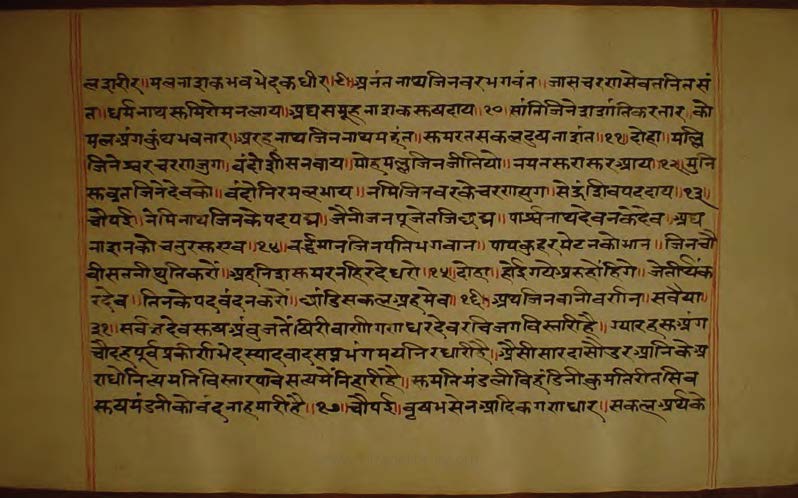 लशरीर॥मलनाशकभवभेदकधीर॥९॥अनंतनाथजिनवरभगवंत॥जासचरणसेवतनितसं
त॥धर्मनाथसमिरोमनलाय॥अघसमूहनाशकसुखदाय॥१०॥सांतिजिनेशशांतिकरतार॥को
मलअंगकुंथुभवतार॥अरहनाथजिननाथमहंत॥समरतसकलदुखनाशंत॥११॥दोहा॥मल्लि
जिनेश्वरचरणजुग॥वंदोंशीसनवाय॥मोहमल्लजिनजीतियो॥नयनसुरासुरआय॥१२॥मुनि
सुवृतजिनदेवको॥वंदोनिरमलभाय॥नमिजिनवरकेचरणयुग॥सेऊंशिवपददाय॥१३॥
चौपई॥नेमिनाथजिनकेपदपद्म॥जैनीजनपूजेतजिछद्म॥पार्श्वनाथदेवनकेदेव॥अघ
नाशनकोचतुरसुएव॥१४॥वर्द्धमानजिनपतिभगवान॥पापकुहरमेटनकोभान॥जिनचौ
वीसतनीथुतिकरों॥अहनिशसुमरनहिरदेधरों॥१५॥दोहा॥होईगयेअरुहोंहिगे॥जेतीर्थंक
रदेव॥तिनकेपदवंदनकरों॥छांडिसकलअहमेव॥१६॥अथजिनवानीवर्णन॥सवैया॥
३१॥सर्वज्ञदेवमुखअंबुजतेंखिरीवाणीगणधरदेवरचिजगविस्तारीहै॥ग्यारहसुअंग
चौदहपूर्वप्रकीर्णभेदस्यादवादसप्तभंगमयनिरधारीहै॥औसीसारदासौउरआनिकेअ
राधोनित्यमतिविस्तारपावेसत्यमेंनिहारीहै॥सुमतिमंडलीविहंडिनीकुमतिरीतसिव
सुखमंडनीकोवंदनाहमारीहै॥१७॥चौपई॥वृषभसेनआदिकगणधार॥सकलअर्थके